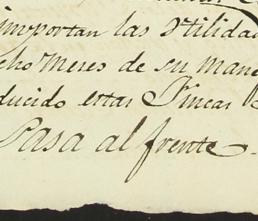 importan las Utilidad
cho Meses de su mane
ducido estas Fincas
Pasa al frente